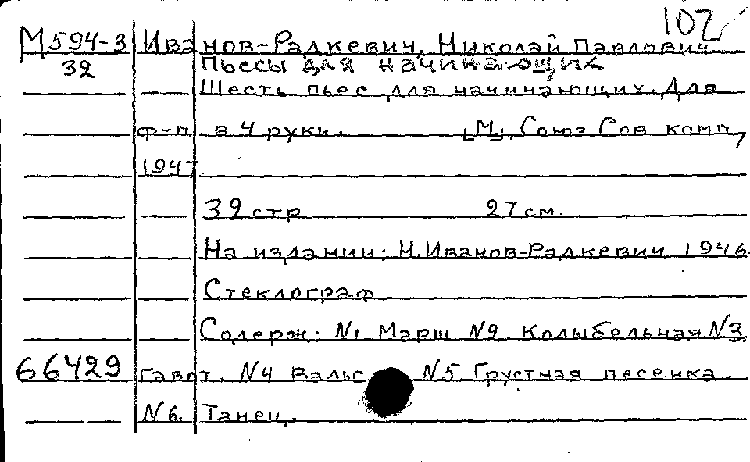 102
М594-3 Иванов-Радкевич, Николай Павлович
32 Пьесы для начинающих
Шесть пьес для начинающих. Для
ф-п в 4 руки. [М], Союз Сов комп,
1947
32 стр 27 см.
На издании: Н. Иванов-Радкевич 1946
Стеклограф
Содерж: №1 Марш №2 Колыбельная №3
66429 Гавот. №4 Вальс №5 Грустная песенка
№6. Танец.